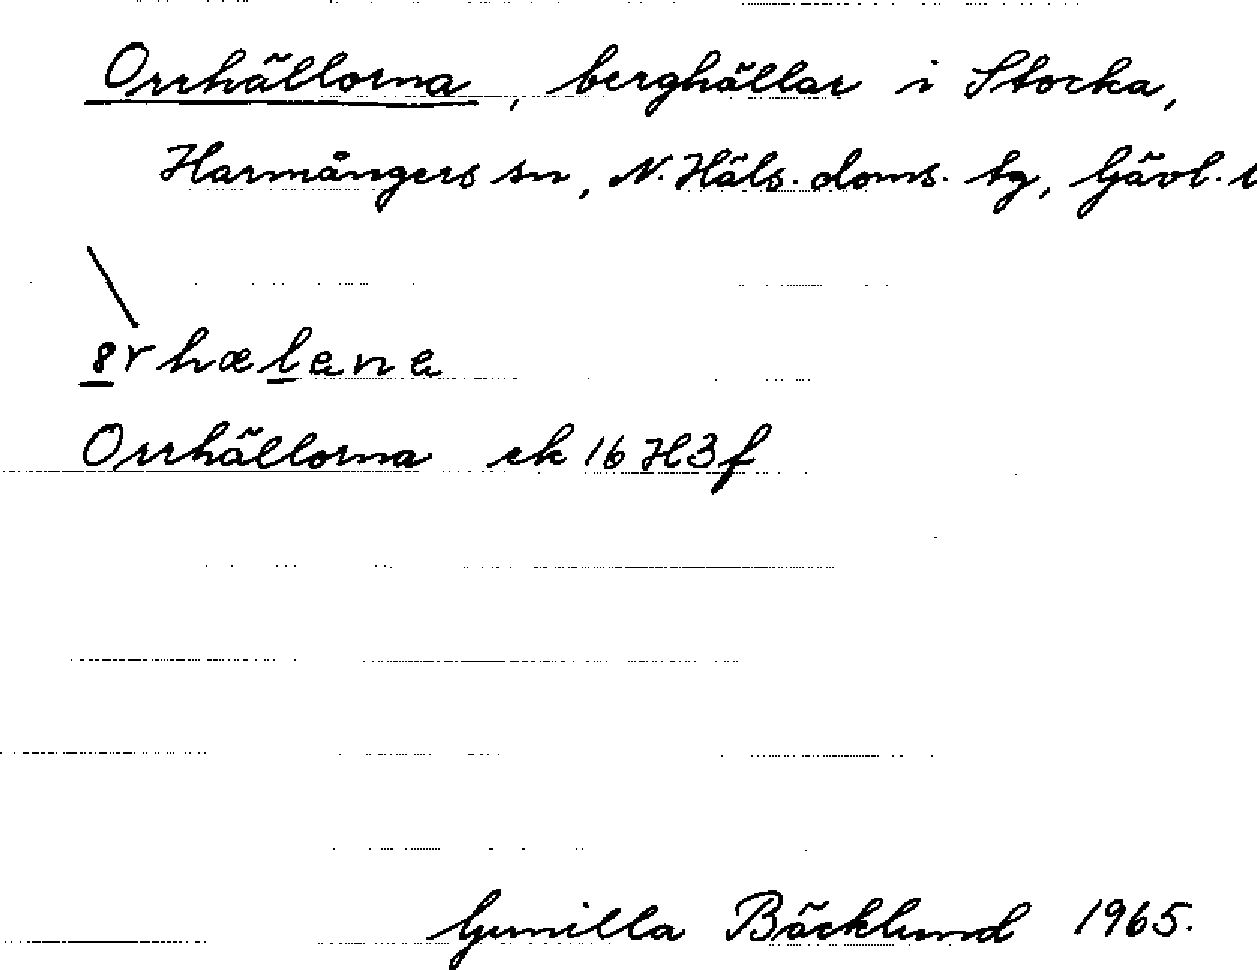 Orrhällorna, berghällar i Stocka,
Harmångers sn, N. Häls. doms. tg, Gävl. l
\
8rhælana
Orrhällorna ek 16 H3f
Gunilla Bäcklund 1965.